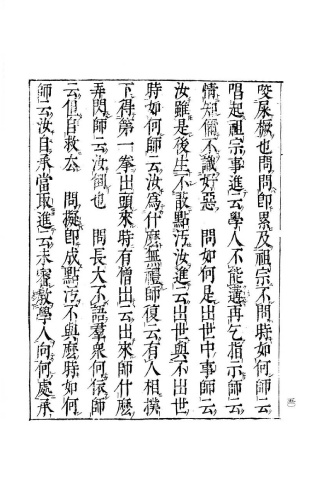 咬屎橛也問問即累及祖宗不問時如何師云
唱起祖宗事進云學人不能遘再乞指示師云
情知儞不識好惡　問如何是出世中事師云
汝雖是後生不敢點汚汝進云出世與不出世
時如何師云汝爲什麽無禮師復云有人相撲
下得第一拳出頭來時有僧出云出來師什麽
弄閃師云汝衂也　問長大不語羣衆何依師
云但自救去　問擬即成點汚不與麽時如何
師云汝自承當取進云未審敎學人向何處承